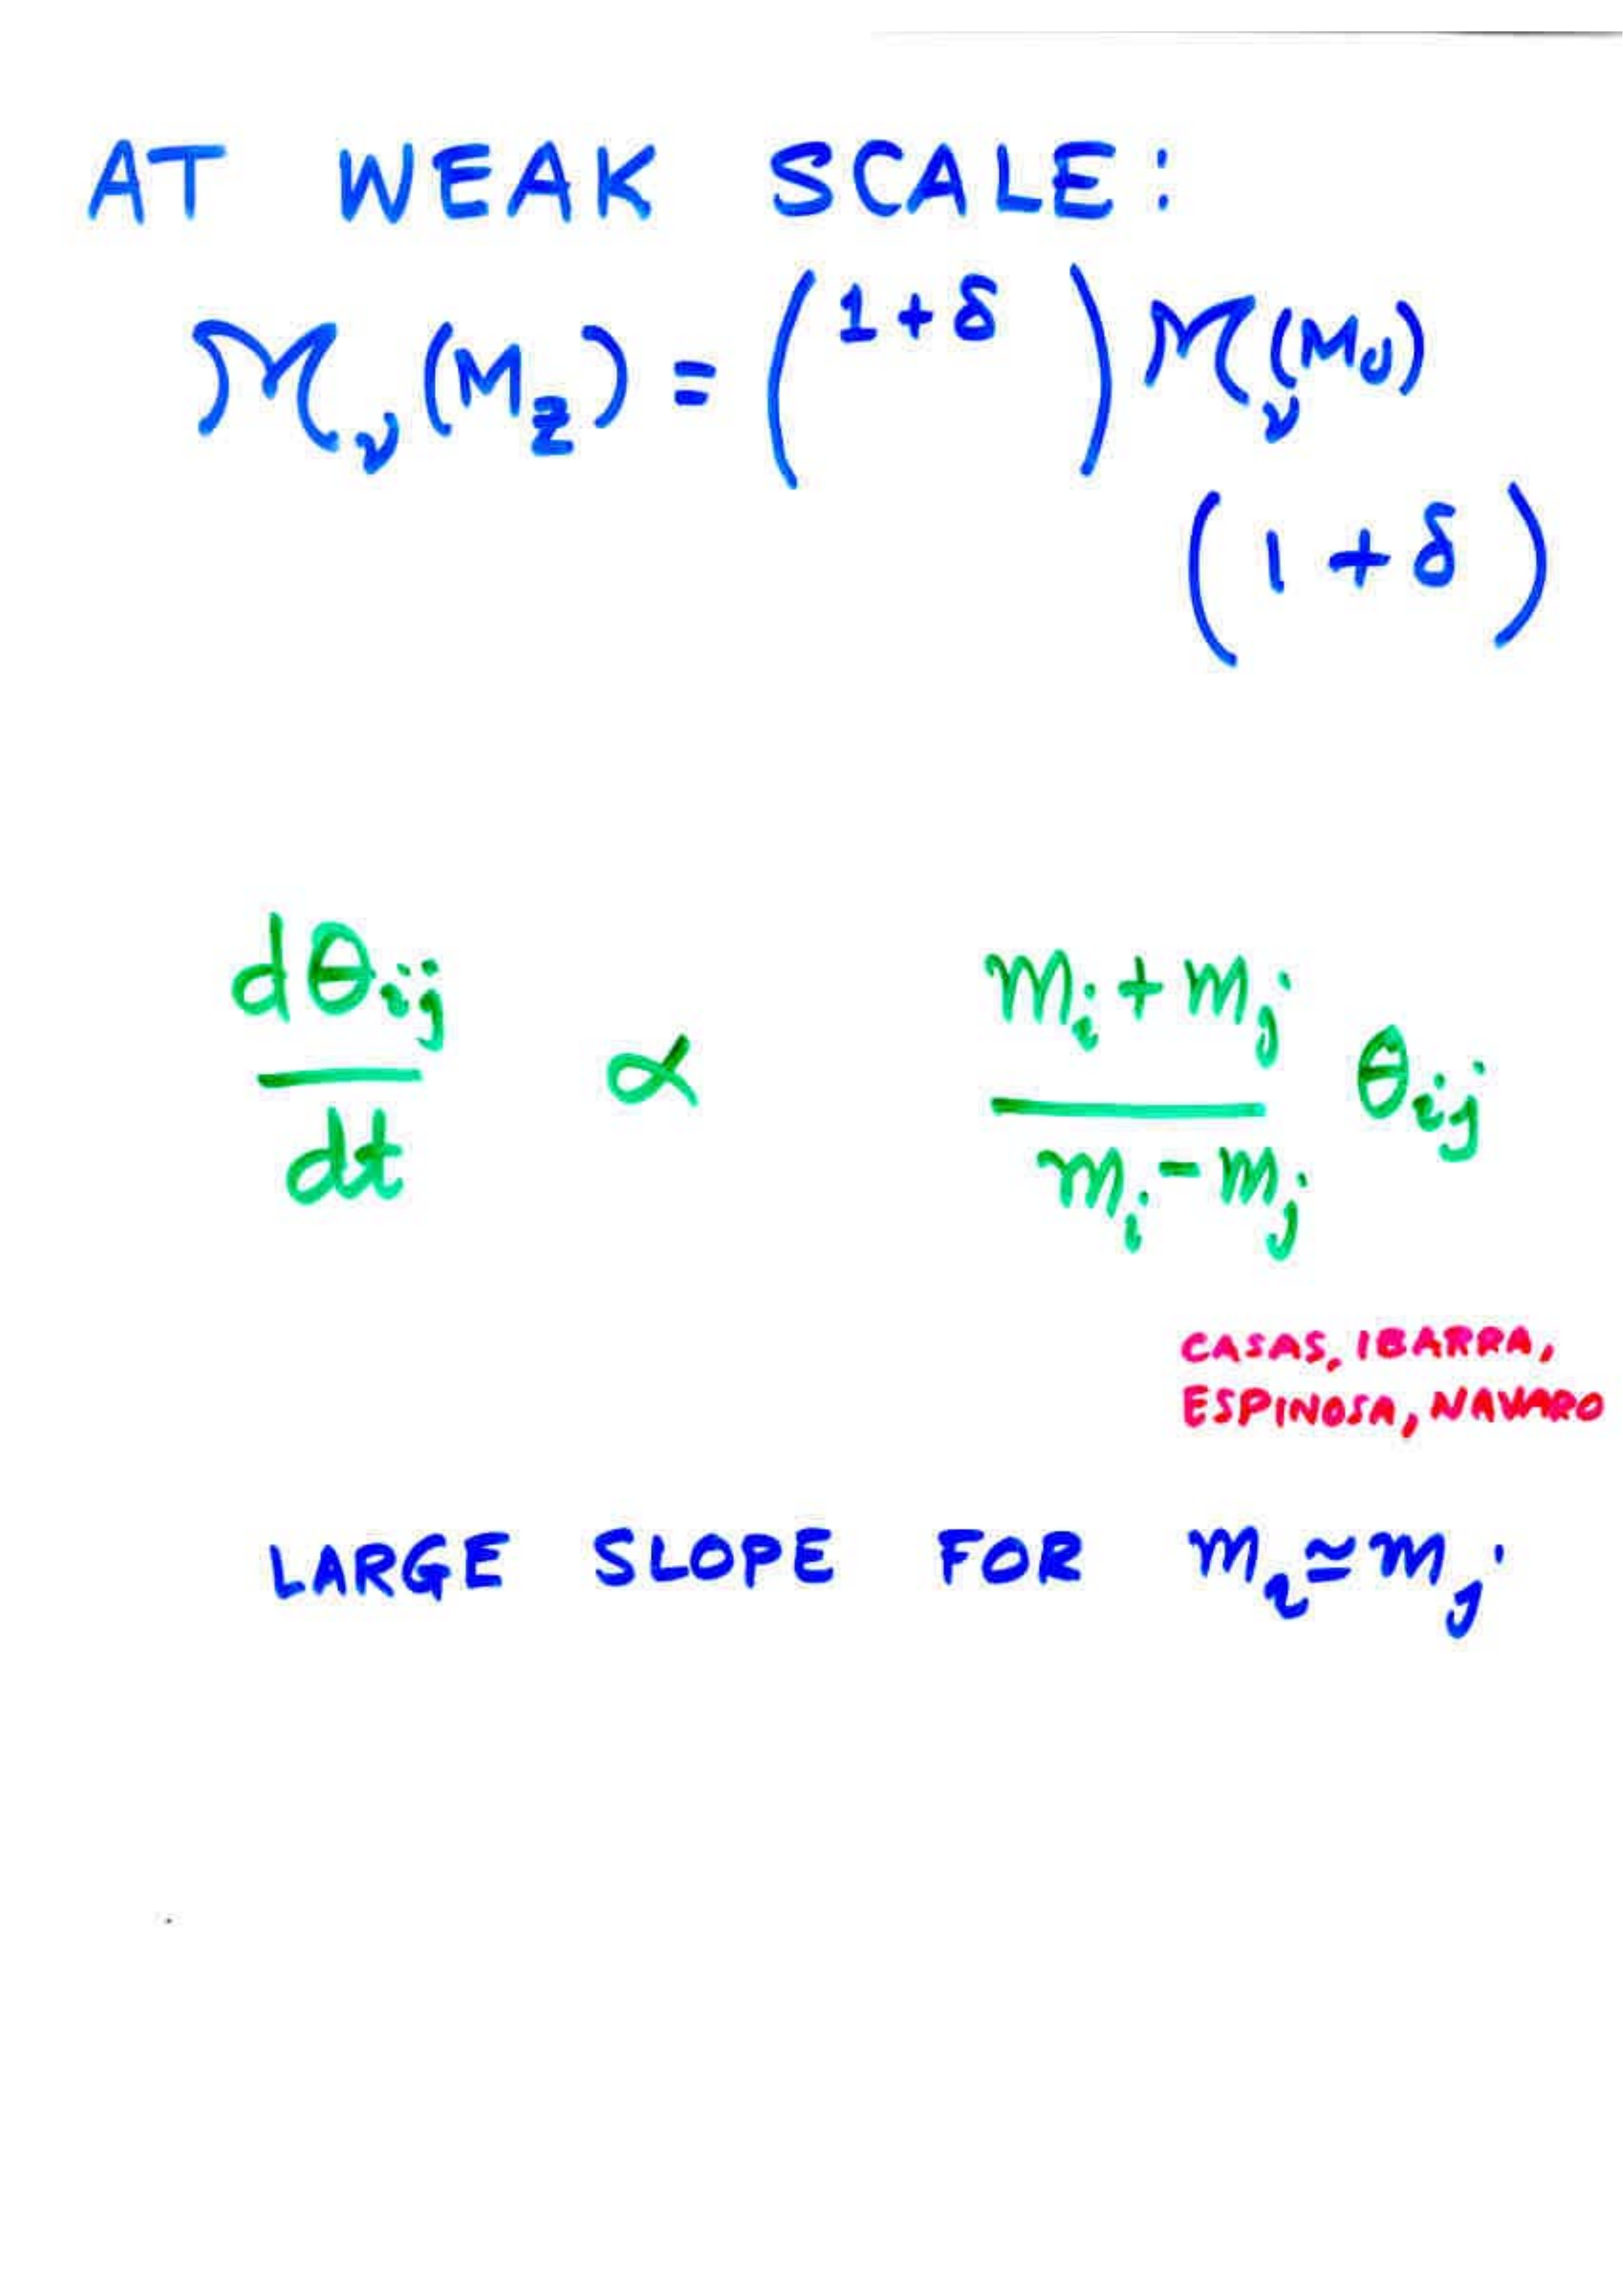 AT WEAK SCALE:
𝓜_ν (M_Z) = (1+δ) 𝓜_ν (M_U)
(1+δ)
dθ_ij / dt ∝ (m_i + m_j) / (m_i - m_j) θ_ij
CASAS, IBARRA,
ESPINOSA, NAVARO
LARGE SLOPE FOR m_i ≃ m_j